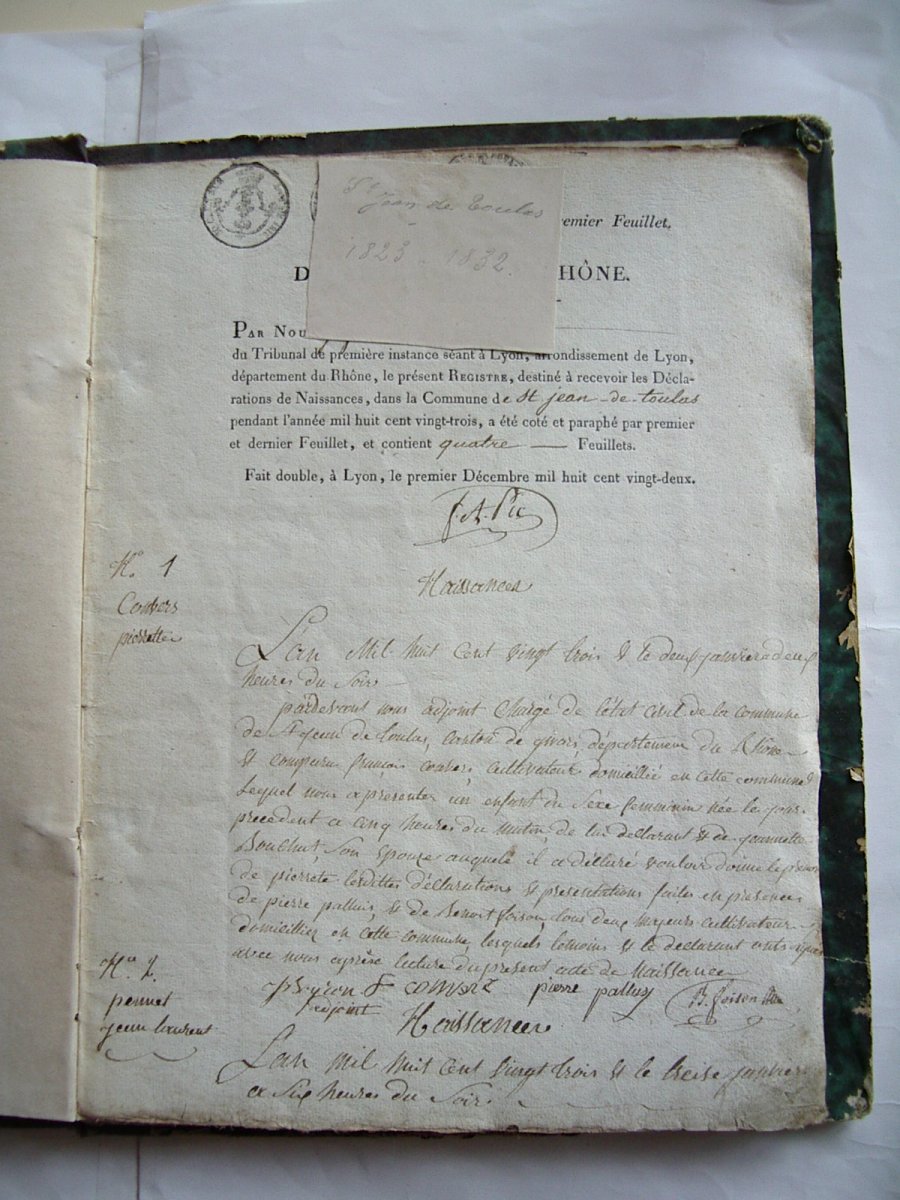 St jean de Toulas
1823 - 1832.
remier Feuillet.
D HÔNE.
PAR NOU
du Tribunal de première instance séant à Lyon, arrondissement de Lyon,
département du Rhône, le présent REGISTRE, destiné à recevoir les Décla-
rations de Naissances, dans la Commune de St jean-de-toulas
pendant l'année mil huit cent vingt-trois, a été coté et paraphé par premier
et dernier Feuillet, et contient quatre — Feuillets.
Fait double, à Lyon, le premier Décembre mil huit cent vingt-deux.
Naissances
No. 1
Convers
pierrette
L'an Mil huit Cent vingt trois & le deux janvier a deux
heures du Soir
pardevant nous adjoint Chargé de l'état civil de la commune
de St jean de toulas, canton de givors département du Rhône
& comparu françois convers cultivateur domicillié en cette commune
Lequel nous a présenter un enfant du Sexe feminin née le jour
precedent a cinq heures du matin de lui declarant & de jeannette
Bouchut Son Epouse auquele il a déclaré vouloir donne le prenom
de pierrete lesdittes déclarations & presentations faites en presences
de pierre palluis & de Benoit foison tous deux majeurs cultivateur
domicillier en cette commune, lesquels temoins & le declarant onts signer
avec nous après lecture du present acte de Naissance
peyron F CONVERT pierre palluy B. foison
adjoint
Naissances
No 2
pennet
jean laurent
L'an mil huit Cent vingt trois & le treise janvier
a Six heures du Soir